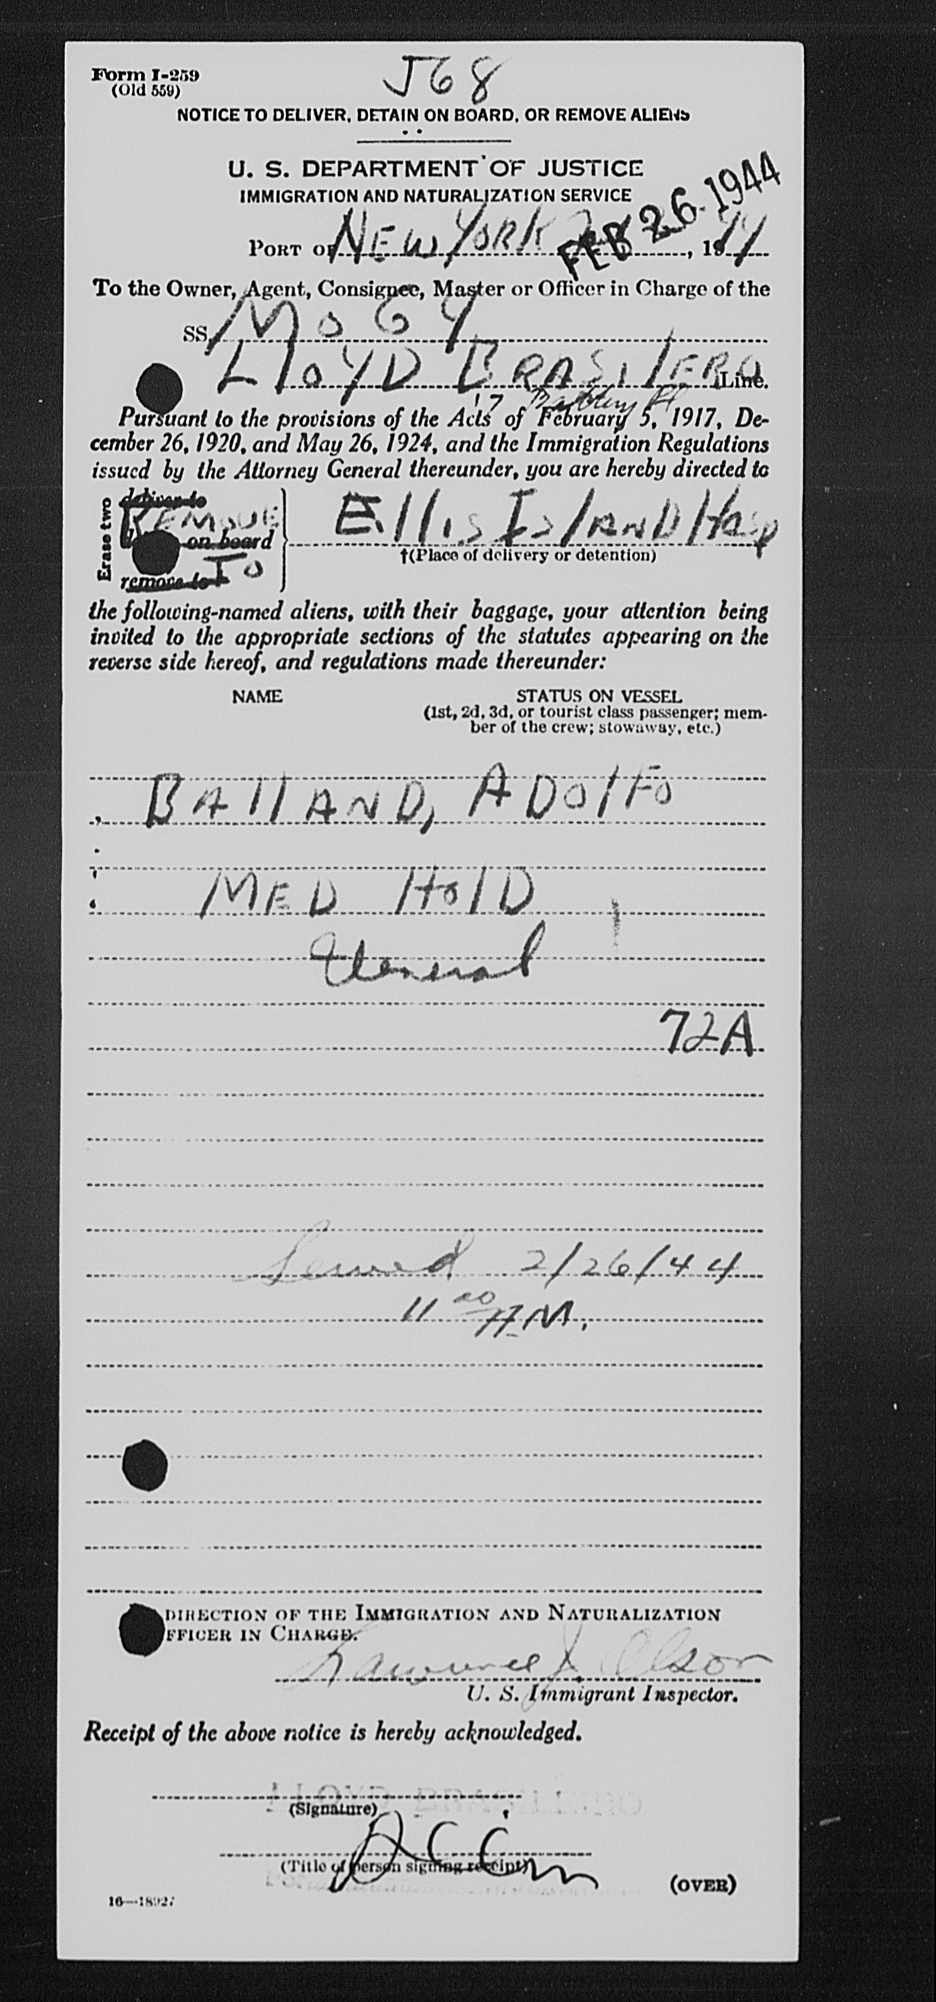 Form I-259
(Old 559)
J68
NOTICE TO DELIVER, DETAIN ON BOARD, OR REMOVE ALIENS
U. S. DEPARTMENT OF JUSTICE
IMMIGRATION AND NATURALIZATION SERVICE
FEB 26 1944
PORT OF NEW YORK, 1944
To the Owner, Agent, Consignee, Master or Officer in Charge of the
SS. MOGY
LLOYD BRASILERO Line.
17 Battery Pl
Pursuant to the provisions of the Acts of February 5, 1917, De-
cember 26, 1920, and May 26, 1924, and the Immigration Regulations
issued by the Attorney General thereunder, you are hereby directed to
Erase two
deliver to
REMOVE
on board
remove to TO
Ellis Island Hosp
†(Place of delivery or detention)
the following-named aliens, with their baggage, your attention being
invited to the appropriate sections of the statutes appearing on the
reverse side hereof, and regulations made thereunder:
NAME
STATUS ON VESSEL
(1st, 2d, 3d, or tourist class passenger; mem-
ber of the crew; stowaway, etc.)
BALLAND, ADOLFO
MED HOLD
General
72A
Served 2/26/44
11 00 A.M.
DIRECTION OF THE IMMIGRATION AND NATURALIZATION
FFICER IN CHARGE.
Lawrence J. Olson
U. S. Immigrant Inspector.
Receipt of the above notice is hereby acknowledged.
(Signature)
(Title of person signing receipt)
(OVER)
16—18927